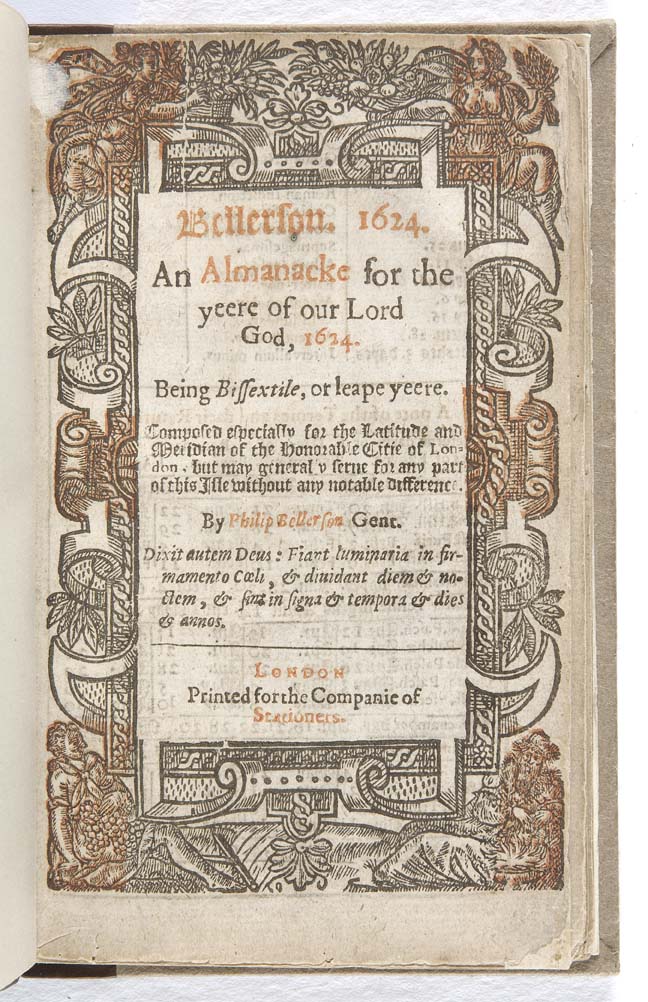 Bellerson. 1624.
An Almanacke for the
yeere of our Lord
God, 1624.
Being Bissextile, or leape yeere.
Composed especially for the Latitude and
Meridian of the Honorable Citie of Lon-
don, but may generaly serue for any part
of this Isle without any notable difference.
By Philip Bellerson Gent.
Dixit autem Deus: Fiant luminaria in fir-
mamento Cœli, & diuidant diem & no-
ctem, & sint in signa & tempora & dies
& annos.
LONDON
Printed for the Companie of
Stationers.